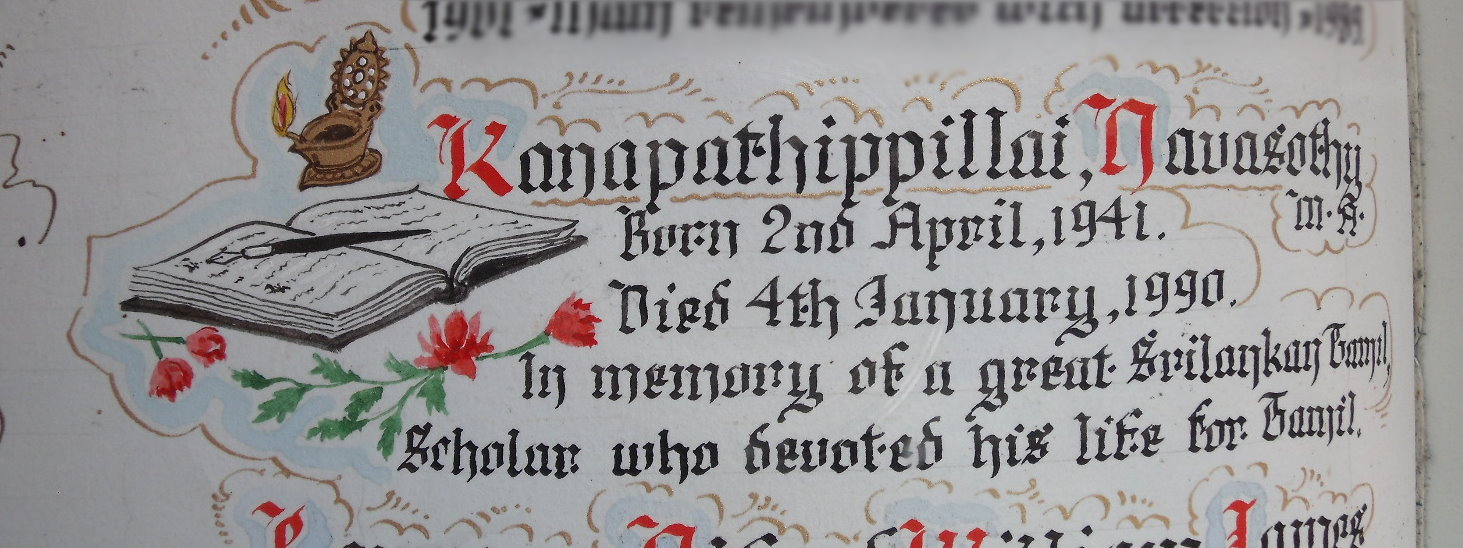 Kanapathippillai, Navasothy
M.A.
Born 2nd April, 1941.
Died 4th January, 1990.
In memory of a great Srilankan Tamil,
Scholar who devoted his life for Tamil.
William James